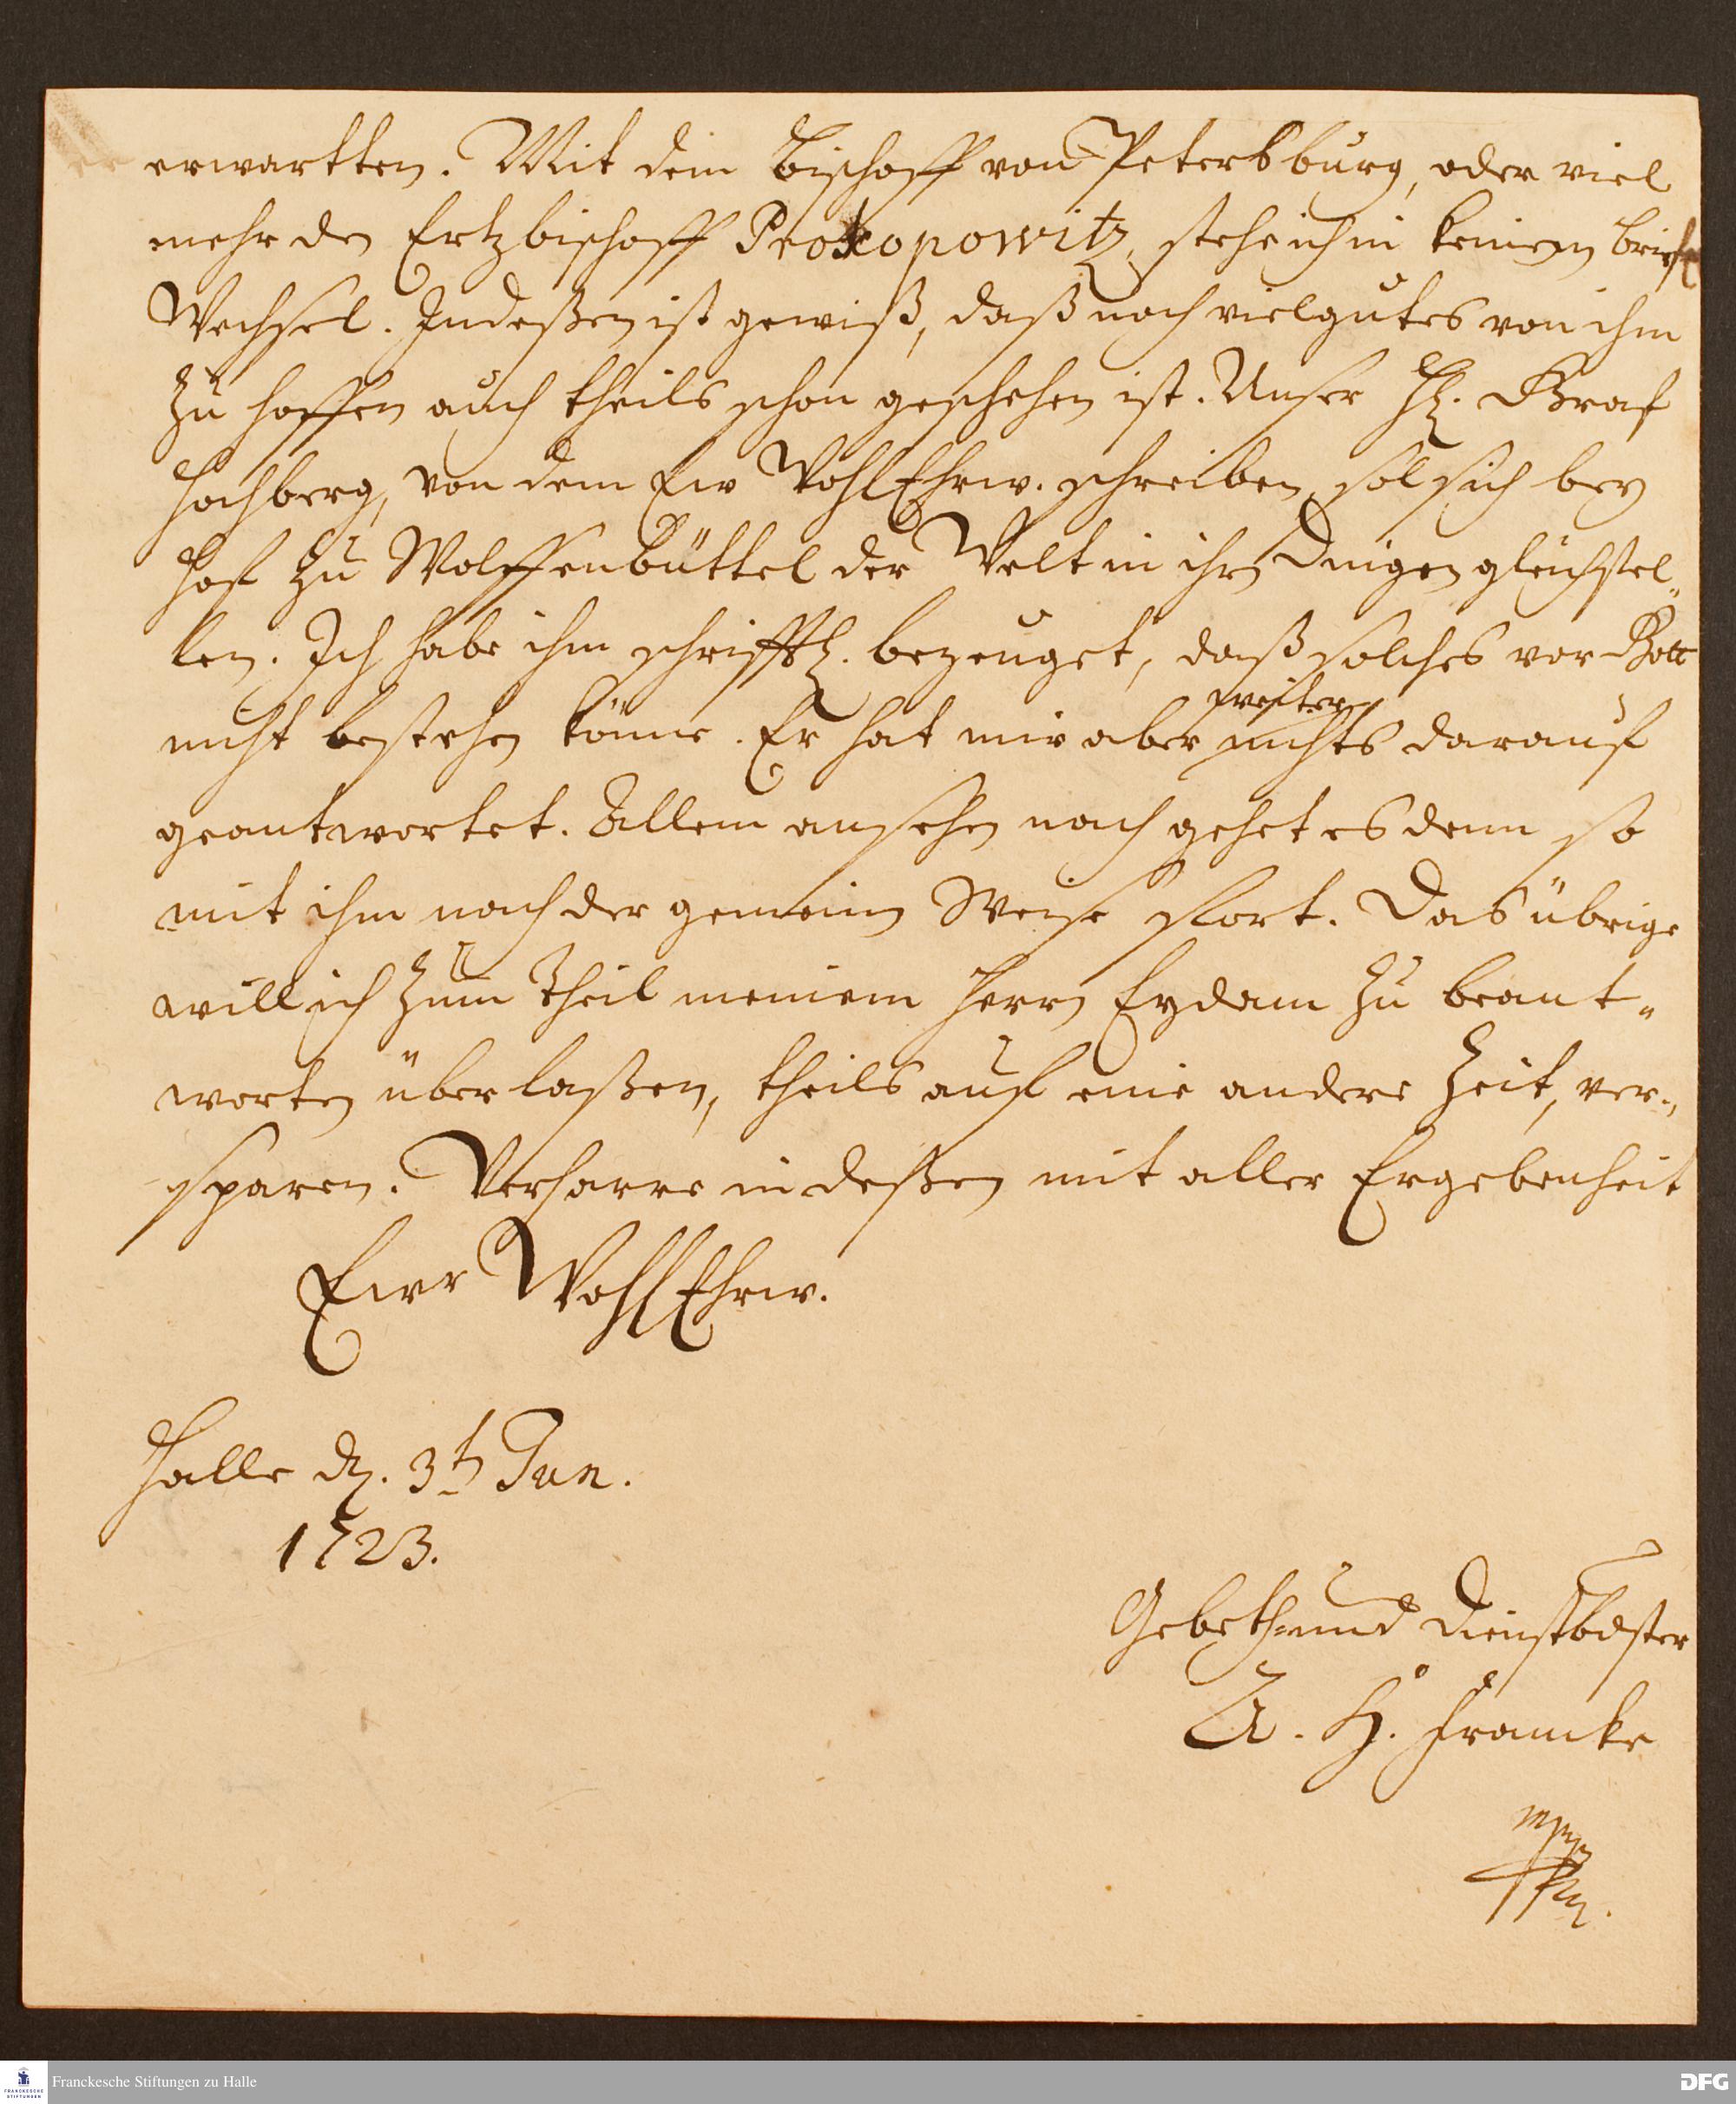 erwartten. Mit dem Bischoff von Petersburg, oder viel
mehr den Ertzbischoff Prokopowitz, stehe ich in keinem brieff
Wechsel. Indeßen ist gewiß, daß noch viel gutes von ihm
zu hoffen auch theils schon geschehen ist. Unser H. Graf
Hochberg, von dem Ew WohlEhrw. schreiben, sol sich bey
Hof zu Wolffenbüttel der Welt in ihren Dingen gleichstel„
len. Ich habe ihm schrifftl. bezeuget, daß solches vor Gott
nicht bestehen könne. Er hat mir aber weiter nichts darauf
geantwortet. Allem ansehen nach gehet es denn so
mit ihm nach der gemeinen Weise fort. Das übrige
will ich zum Theil meinem Herrn Eydam zu beant„
worten überlaßen, theils auf eine andere Zeit, ver„
sparen. Verharre indeßen mit aller Ergebenheit
Ewr WohlEhrw.
Halle d. 3ten Jun.
1723.
Gebeth- und Dienstbester
A. H. Francke
mppria
Franckesche Stiftungen zu Halle
FRANCKESCHE
STIFTUNGEN
DFG